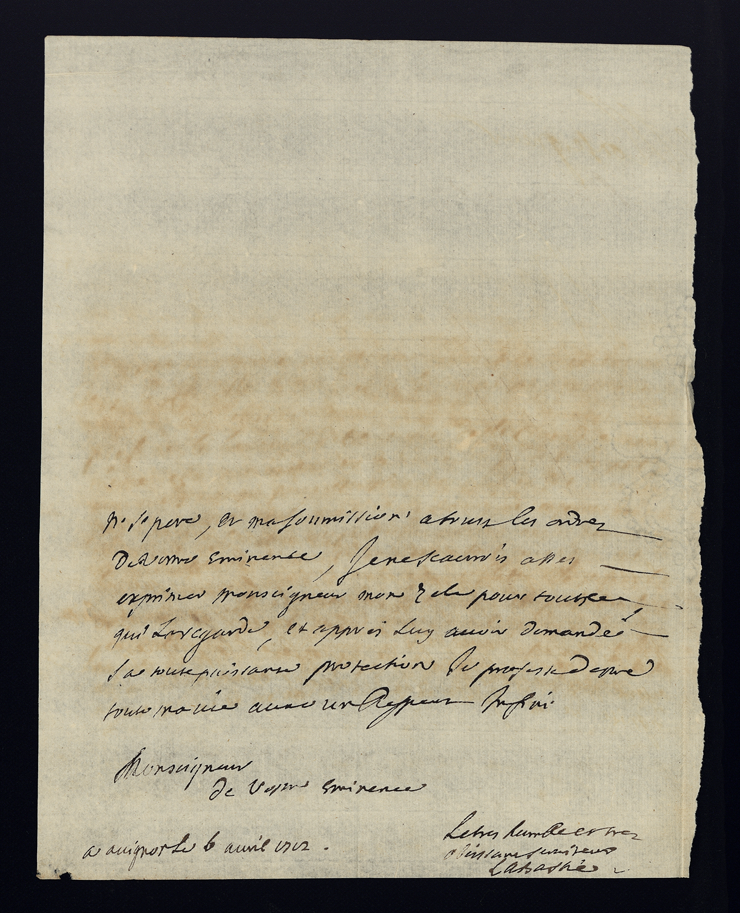 n. s. pere, et ma soumission a tous les ordres
de Vostre Eminence, Je ne scaurois asses
exprimer monseigneur mon zele pour tout ce
qui La regarde, et apprés Luy avoir demandé
Sa toute puissante protection Je proteste d'estre
toute ma vie avec un Respect Infini
Monseigneur
de Vostre Eminence
Le tres humble et tres
obeissant serviteur
LaBastie
a avignon Le 6 avril 1712.